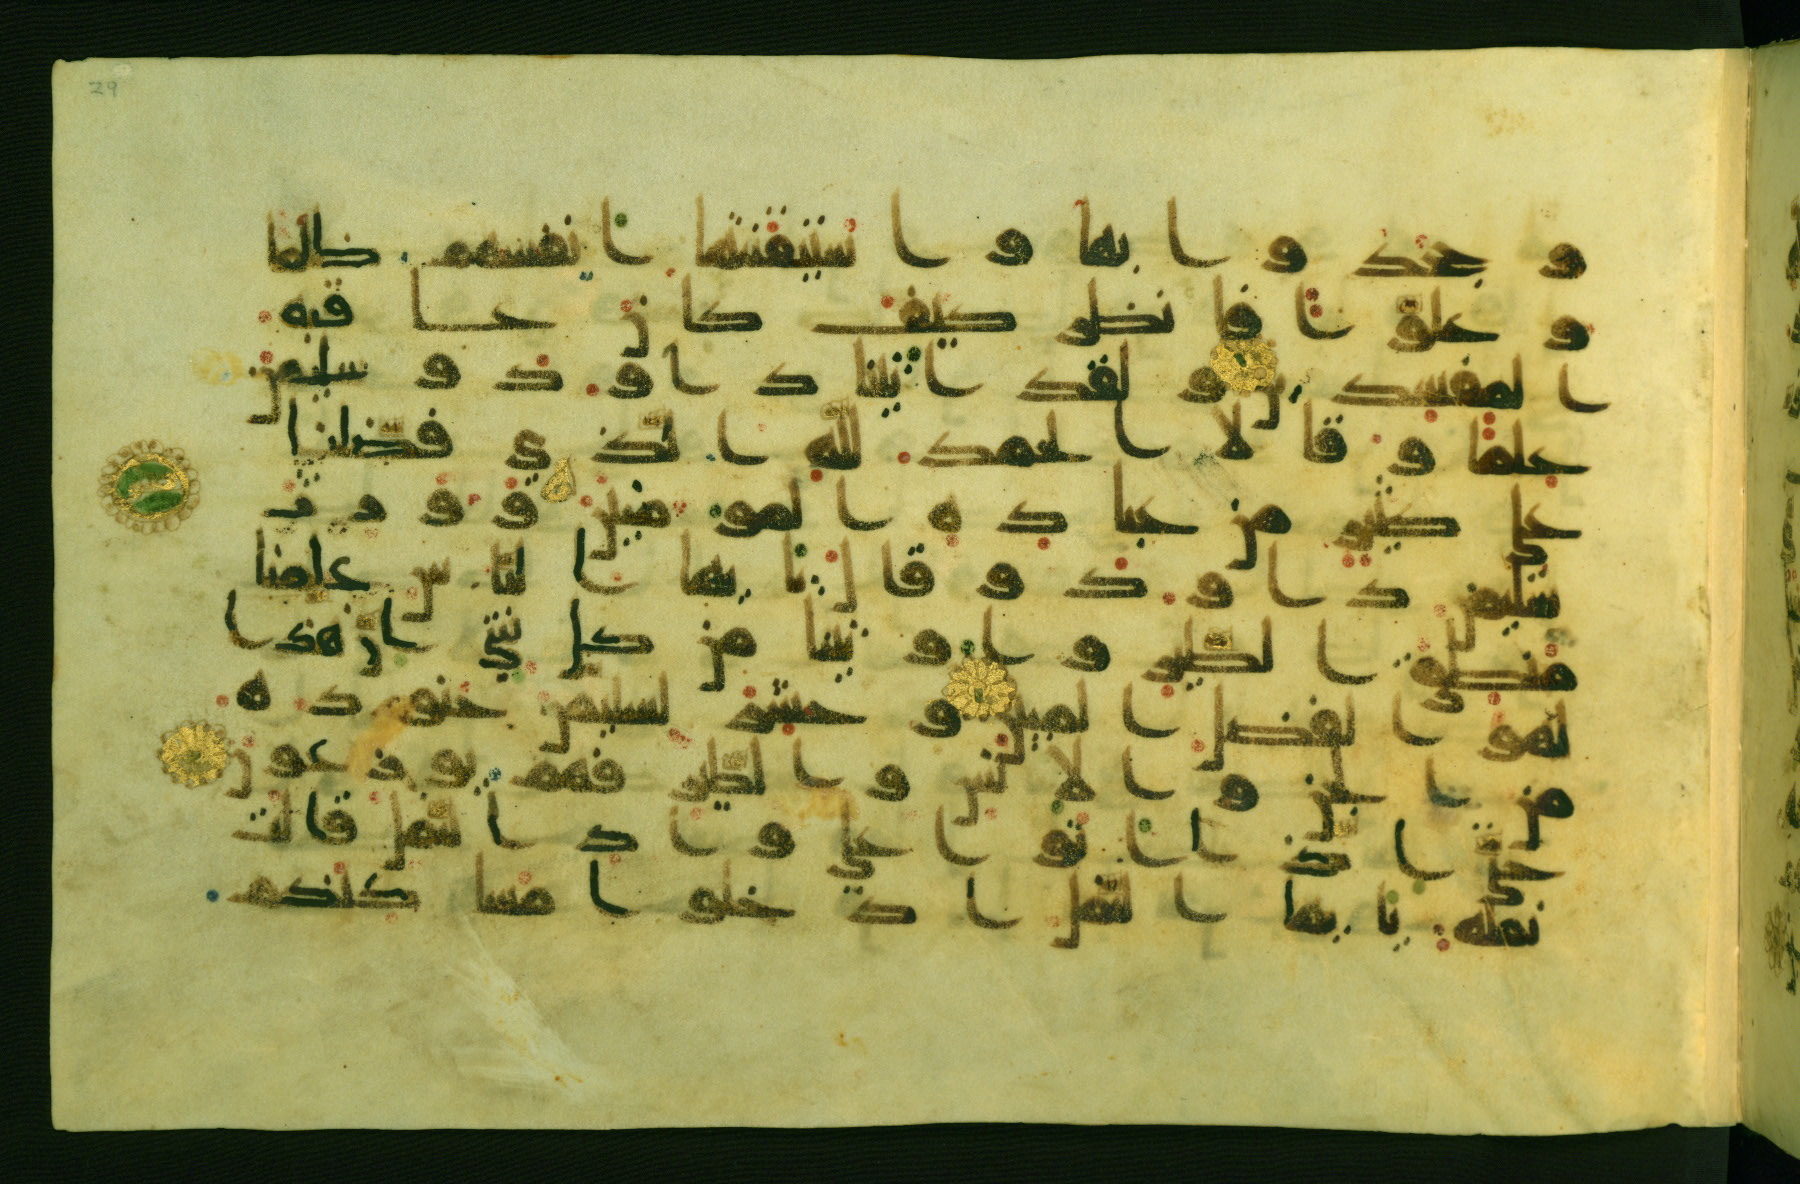 29
و جحدوا بها و استيقنتها انفسهم ظلما
و علوا فانظر كيف كان عاقبة
المفسدين و لقد اتينا داود و سليمن
علما و قالا الحمد لله الذي فضلنا
على كثير من عباده المومنين و ورث
سليمن داود و قال يايها الناس علمنا
منطق الطير و اوتينا من كل شي ان هذا
لهو الفضل المبين و حشر لسليمن جنوده
من الجن و الانس و الطير فهم يوزعون
حتى اذا اتوا على واد النمل قالت
نملة يايها النمل ادخلوا مسكنكم